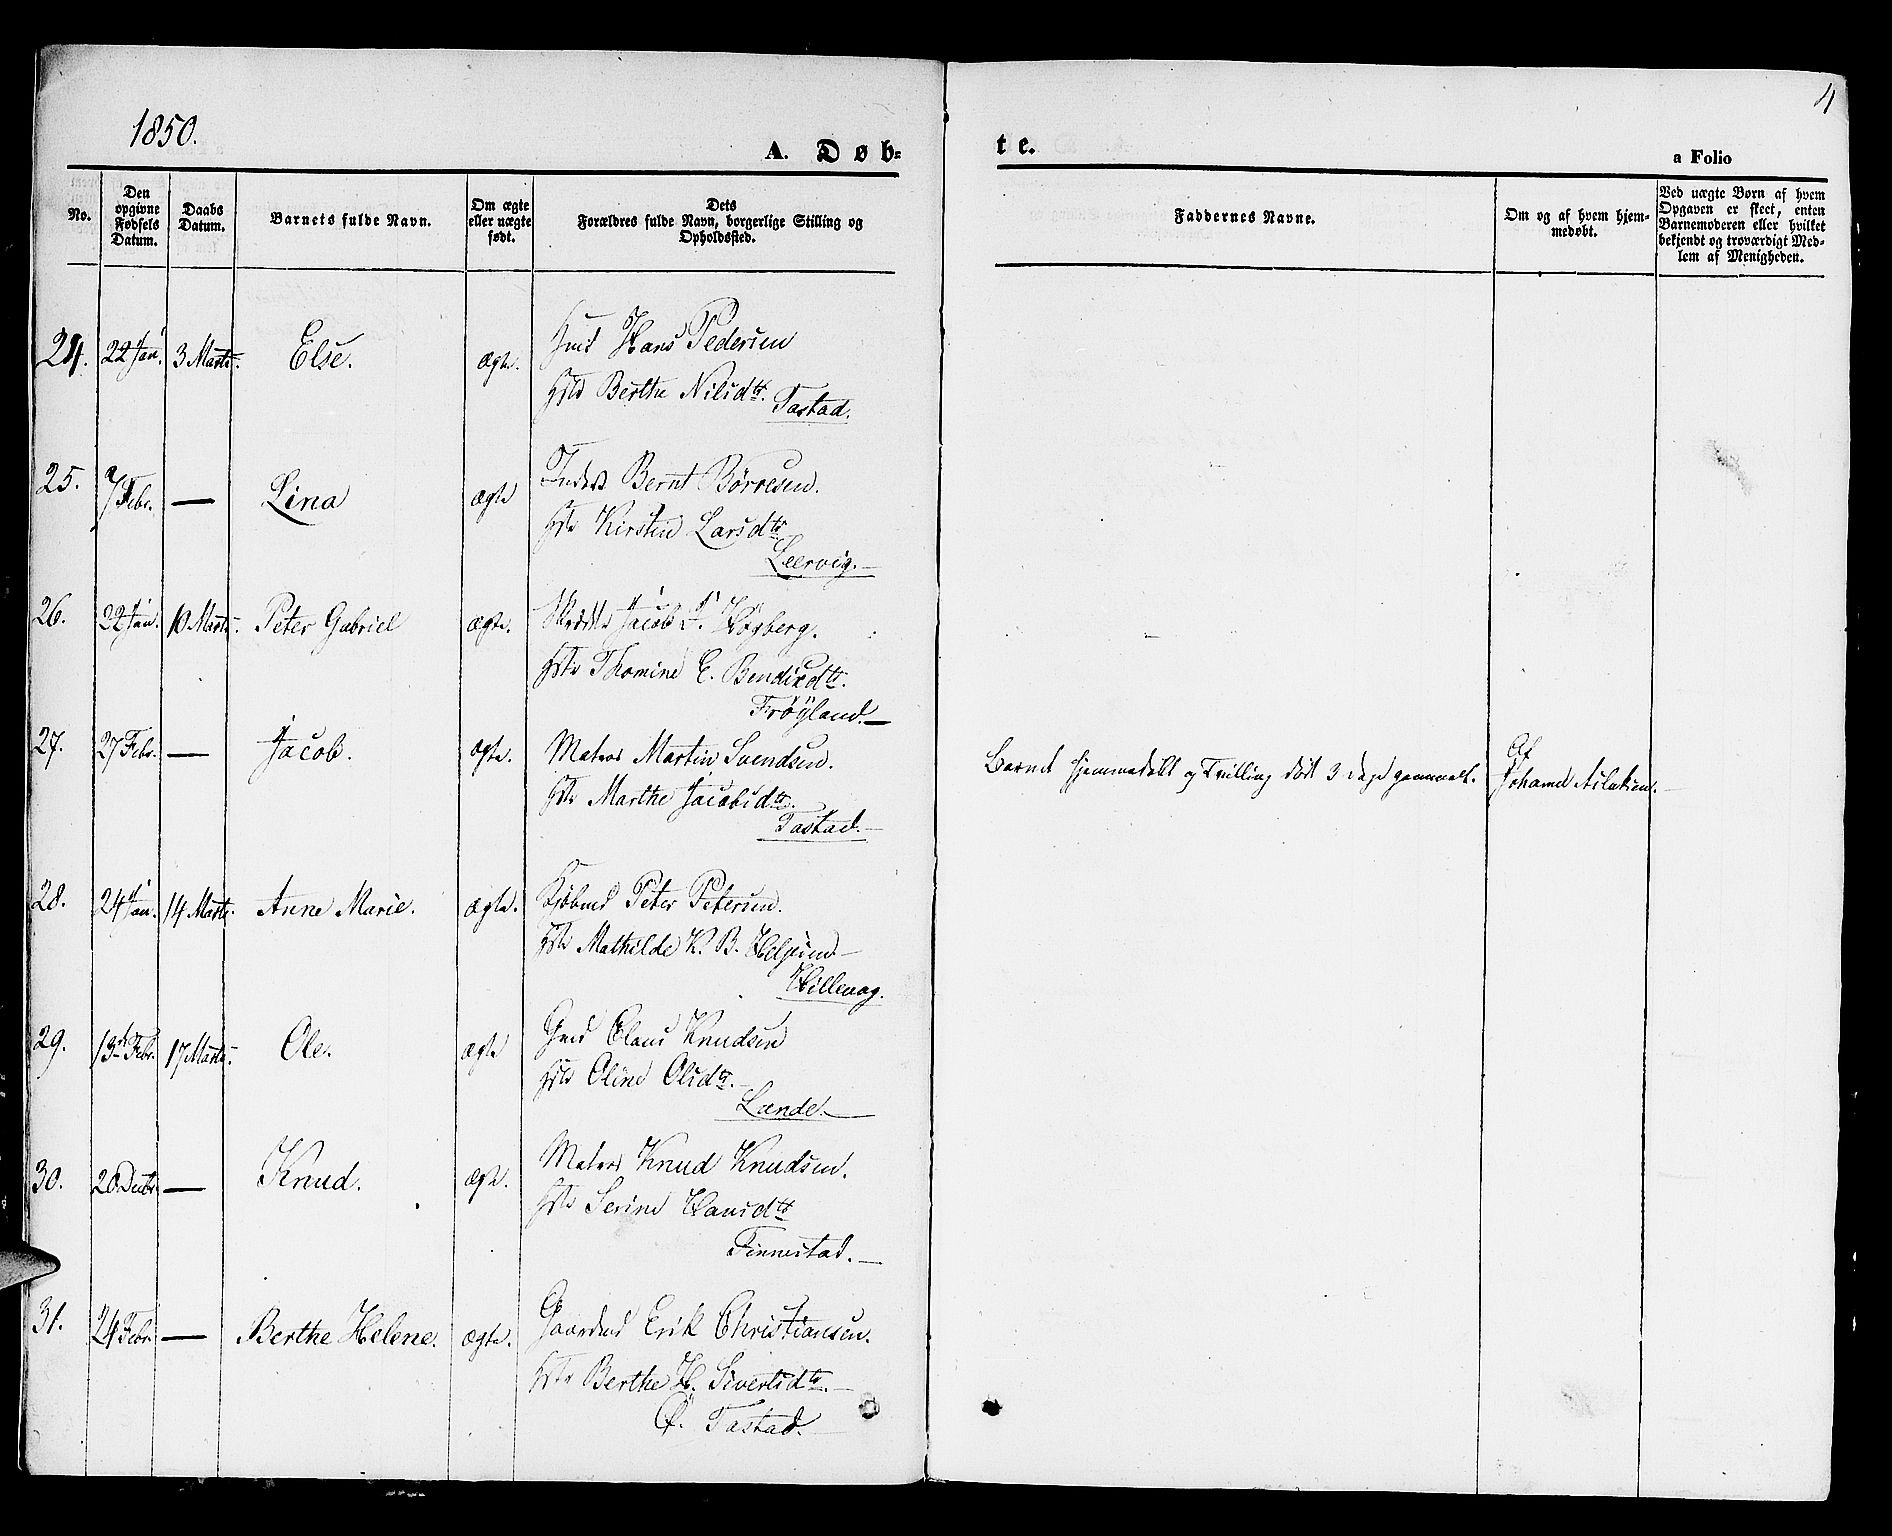 1850.
4
A. Døb=
te.
a Folio
No.
Den opgivne Fødsels Datum.
Daabs Datum.
Barnets fulde Navn.
Om ægte eller uægte født.
Dets Forældres fulde Navn, borgerlige Stilling og Opholdssted.
Faddernes Navne.
Om og af hvem hjem-medøbt.
Ved uægte Børn af hvem Opgaven er skeet, enten Barnemoderen eller hvilket bekjendt og troværdigt Med-lem af Menigheden.
24. 22 Jan. 3 Marts. Else. ægte. Hans Pedersen
Berthe Nilsdtr. Tastad.
25. 7 Febr. — Lina ægte Inderst Bernt Børresen.
Hstr Kirsten Larsdtr
Leervig. —
26. 22 Jan. 10 Marts. Peter Gabriel ægte. Jacob Høyberg.
Hstr Thomine E. Bendixdtr.
Frøyland. —
27. 27 Febr. — Jacob. ægte. Matros Martin Svendsen.
Barnet hjemmedøbt og Tvilling død 3 dage gammelt.
Af Johanne Aslaksen. —
Hstr Marthe Jacobsdtr.
Tastad. —
28. 24 Jan. 14 Marts. Anne Marie. ægte. Kjøbmd Peter Petersen.
Hstr Mathilde K. B. —
Hillevag.
29. 13de Febr. 17 Marts. Ole. ægte Gmd Claus Knudsen
Oline Olsdtr. —
Lænde. —
30. 20 Decbr. — Knud. ægte. Matros Knud Knudsen.
Hstr Serine Hansdtr
Finnestad. —
31. 24 Febr. — Berthe Helene. ægte. Gaardmd Erik Christiansen.
Hstr Berthe H. Sivertsdtr. —
Ø. Tastad. —